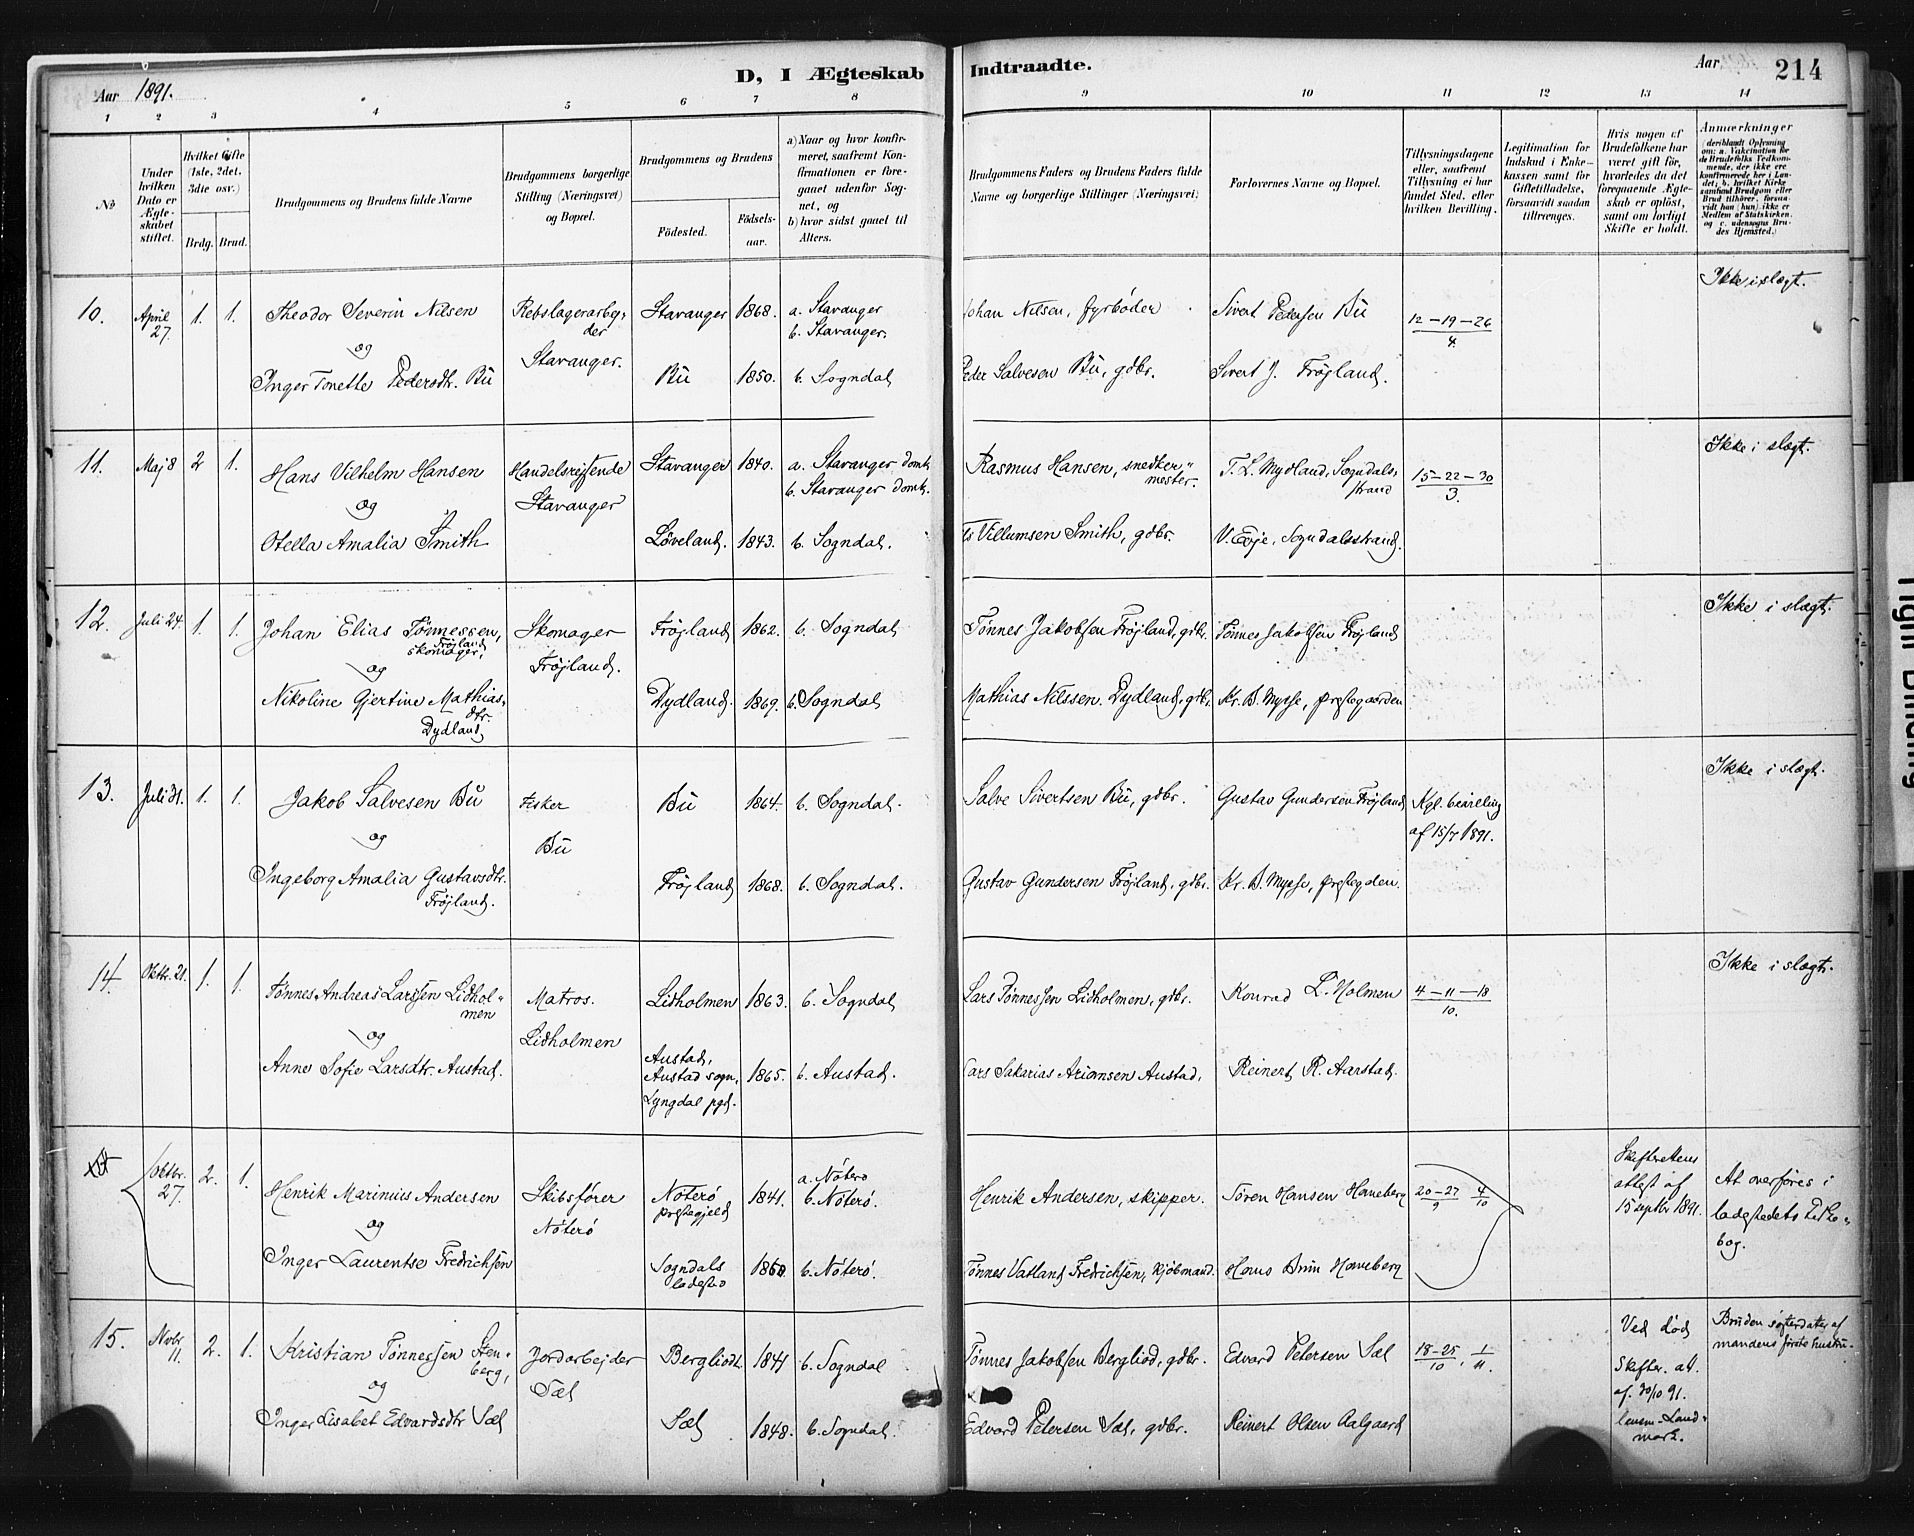 D, I Ægteskab Indtraadte.
Aar 1891.
Aar 214
1 2 3 4 5 6 7 8 9 10 11 12 13 14
No
Under hvilken Dato er Ægteskabet stiftet.
Hvilket Gifte (1ste, 2det, 3die osv.)
Brdg. Brud.
Brudgommens og Brudens fulde Navne
Brudgommens borgerlige Stilling (Næringsvei) og Bopæl.
Brudgommens og Brudens
Fødested.
Fødsels-aar.
a) Naar og hvor konfirmeret, saafremt Konfirmationen er foregaaet udenfor Sognet, og
b) hvor sidst gaaet til Alters.
Brudgommens Faders og Brudens Faders fulde Navne og borgerlige Stillinger (Næringsvei)
Forlovernes Navne og Bopæl.
Tillysningsdagene eller, saafremt Tillysning ei har fundet Sted, efter hvilken Bevilling.
Legitimation for Indskud i Enkekassen samt for Giftetilladelse, forsaavidt saadan tiltrænges.
Hvis nogen af Brudefolkene har været gift før, hvorledes da det foregaaende Ægteskab er opløst, samt om lovligt Skifte er holdt.
Anmærkninger (deriblandt Oplysning om: a. Vakcination for de Brudefolks Vedkommende, der ikke ere konfirmerede her i Landet; b. hvilket Kirkesamfund Brudgom eller Brud tilhører, forsaavidt han (hun) ikke er Medlem af Statskirken. og c. udensogns Brudes Hjemsted.)
10. April 27. 1. 1. Theodor Severin Nilsen Rebslagerarbejder Stavanger 1868. a. Stavanger b. Stavanger. Johan Nilsen, fyrbøder Sivert Pedersen Bu 12-19-26/4. Ikke i slægt.
og Stavanger.
Inger Tonette Pedersdtr. Bu Bu 1850. b. Sogndal Peder Salvesen Bu, gdbr. Sivert J. Frøjland.
11. Maj 8 2 1. Hans Vilhelm Hansen Handelsrejsende Stavanger 1840. a. Stavanger domk. b. Stavanger domk. Rasmus Hansen, snedkermester. T. L. Mydland, Sogndalsstrand 15-22-30/3. Ikke i slægt.
og Stavanger
Otella Amalia Smith Løveland. 1843. b. Sogndal. Villumsen Smith, gdbr. V. Eeje, Sogndalsstrand.
12. Juli 24. 1. 1. Johan Elias Tønnessen, Frøjland skomager, Skomager Frøjland 1862. b. Sogndal Tønnes Jakobsen Frøjland, gdbr. Tønnes Jakobsen Frøjland Ikke i slægt.
og Frøjland.
Nikoline Gjertine Mathiasdtr. Dydland Dydland. 1869. b. Sogndal Mathias Nilssen Dydland, gdbr. Kr. B. Mysse, præstegaarden
13. Juli 31. 1. 1. Jakob Salvesen Bu Fisker Bu 1864. b. Sogndal. Salve Sivertsen Bu, gdbr. Gustav Gundersen Frøjland Kgl. bevilling af 15/7 1891. Ikke i slægt.
og Bu
Ingeborg Amalia Gustavsdtr. Frøjland. Frøjland 1868. b. Sogndal. Gustav Gundersen Frøjland, gdbr. Kr. B. Mysse, præstegden.
14. Oktbr. 21. 1. 1. Tønnes Andreas Larssen Lidholmen Matros. Lidholmen 1863. b. Sogndal Lars Tønnessen Lidholmen, gdbr. Konrad L. Holmen 4-11-18/10. Ikke i slægt.
og Lidholmen
Anne Sofie Larsdtr. Austad. Austad, Austad sogn, Lyngdal pgd. 1865. b. Austad. Lars Sakarias Arionsen Austad, Reinert R. Aarstad.
Oktbr. 27. 2. 1. Henrik Marinius Andersen Skibsfører Nøterø præstegjeld 1841. a. Nøterø b. Nøterø. Henrik Andersen, skipper. Søren Hansen Haneberg 20-27/9 4/10 Skifterettens attest af 15 septbr 1891. At overføres i ladestedets Kirkebog.
og Nøterø
Inger Laurentse Fredrichsen Sogndals ladested b. Nøterø. Tønnes Vatland Fredrichsen, kjøbmand. Hans Brun Haneberg
15. Novbr 11. 2. 1. Kristian Tønnessen Stenberg, Jordarbejder Bergliodt. 1841 b. Sogndal Tønnes Jakobsen Bergliod, gdbr. Edvard Petersen Sæl 18-25/10, 1/11. Ved død Skifter. at. af 30/10 91. lensm. Landmark. Bruden søsterdatter af mandens første hustru.
og Sæl
Inger Lisabet Edvardsdtr Sæl Sæl 1848. b. Sogndal. Edvard Petersen Sæl, gdbr. Reinert Olsen Aalgaard